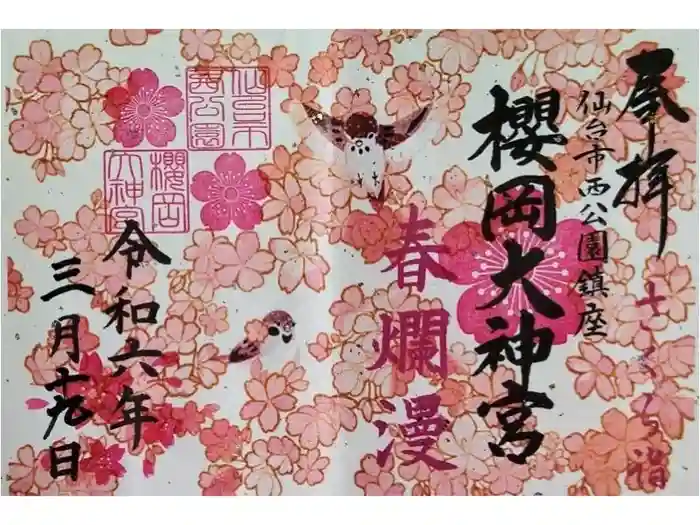 奉拝
さくら詣
仙台市西公園鎮座
櫻岡大神宮
春爛漫
仙台市
西公園
櫻岡
大神宮
令和六年
三月十九日